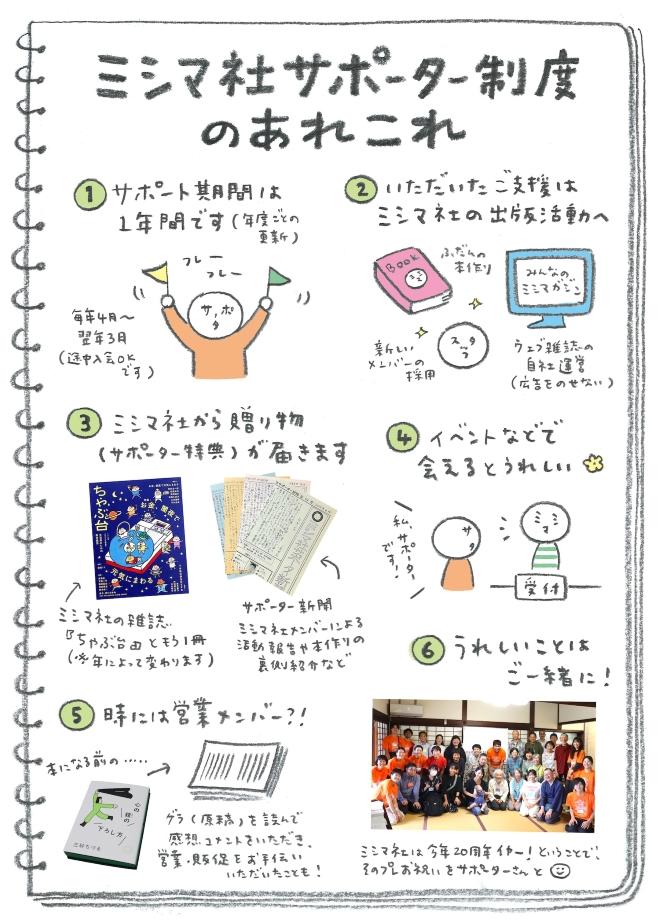 ミシマ社サポーター制度
のあれこれ
1 サポート期間は
1年間です(年度ごとの
更新)
フレー
フレー
サポ
タ
毎年4月〜
翌年3月
(途中入会OK
です)
2 いただいたご支援は
ミシマ社の出版活動へ
BOOK
ふだんの
本作り
みんなの
ミシマガジン
新しい
メンバーの
採用
スタ
ッフ
ウェブ雑誌の
自社運営
(広告をのせない)
3 ミシマ社から贈り物
(サポーター特典)が届きます
ちゃぶ台
お金、闇夜で
元気にまわる
ミシマ社の雑誌
『ちゃぶ台』ともう1冊
(※年によって変わります)
サポーター新聞
ミシマ社メンバーによる
活動報告や本作りの
裏側紹介など
4 イベントなどで
会えるとうれしい
私、サポーター
です!
サポ
ミシマ
受付
5 時には営業メンバー?!
本になる前の……
心の
鎧の
下ろし方
三砂ちづる
ゲラ(原稿)を読んで
感想コメントをいただき、
営業・販促をお手伝い
いただいたことも!
6 うれしいことは
ご一緒に!
ミシマ社は今年20周年イヤー!ということで、
そのプレお祝いをサポーターさんと